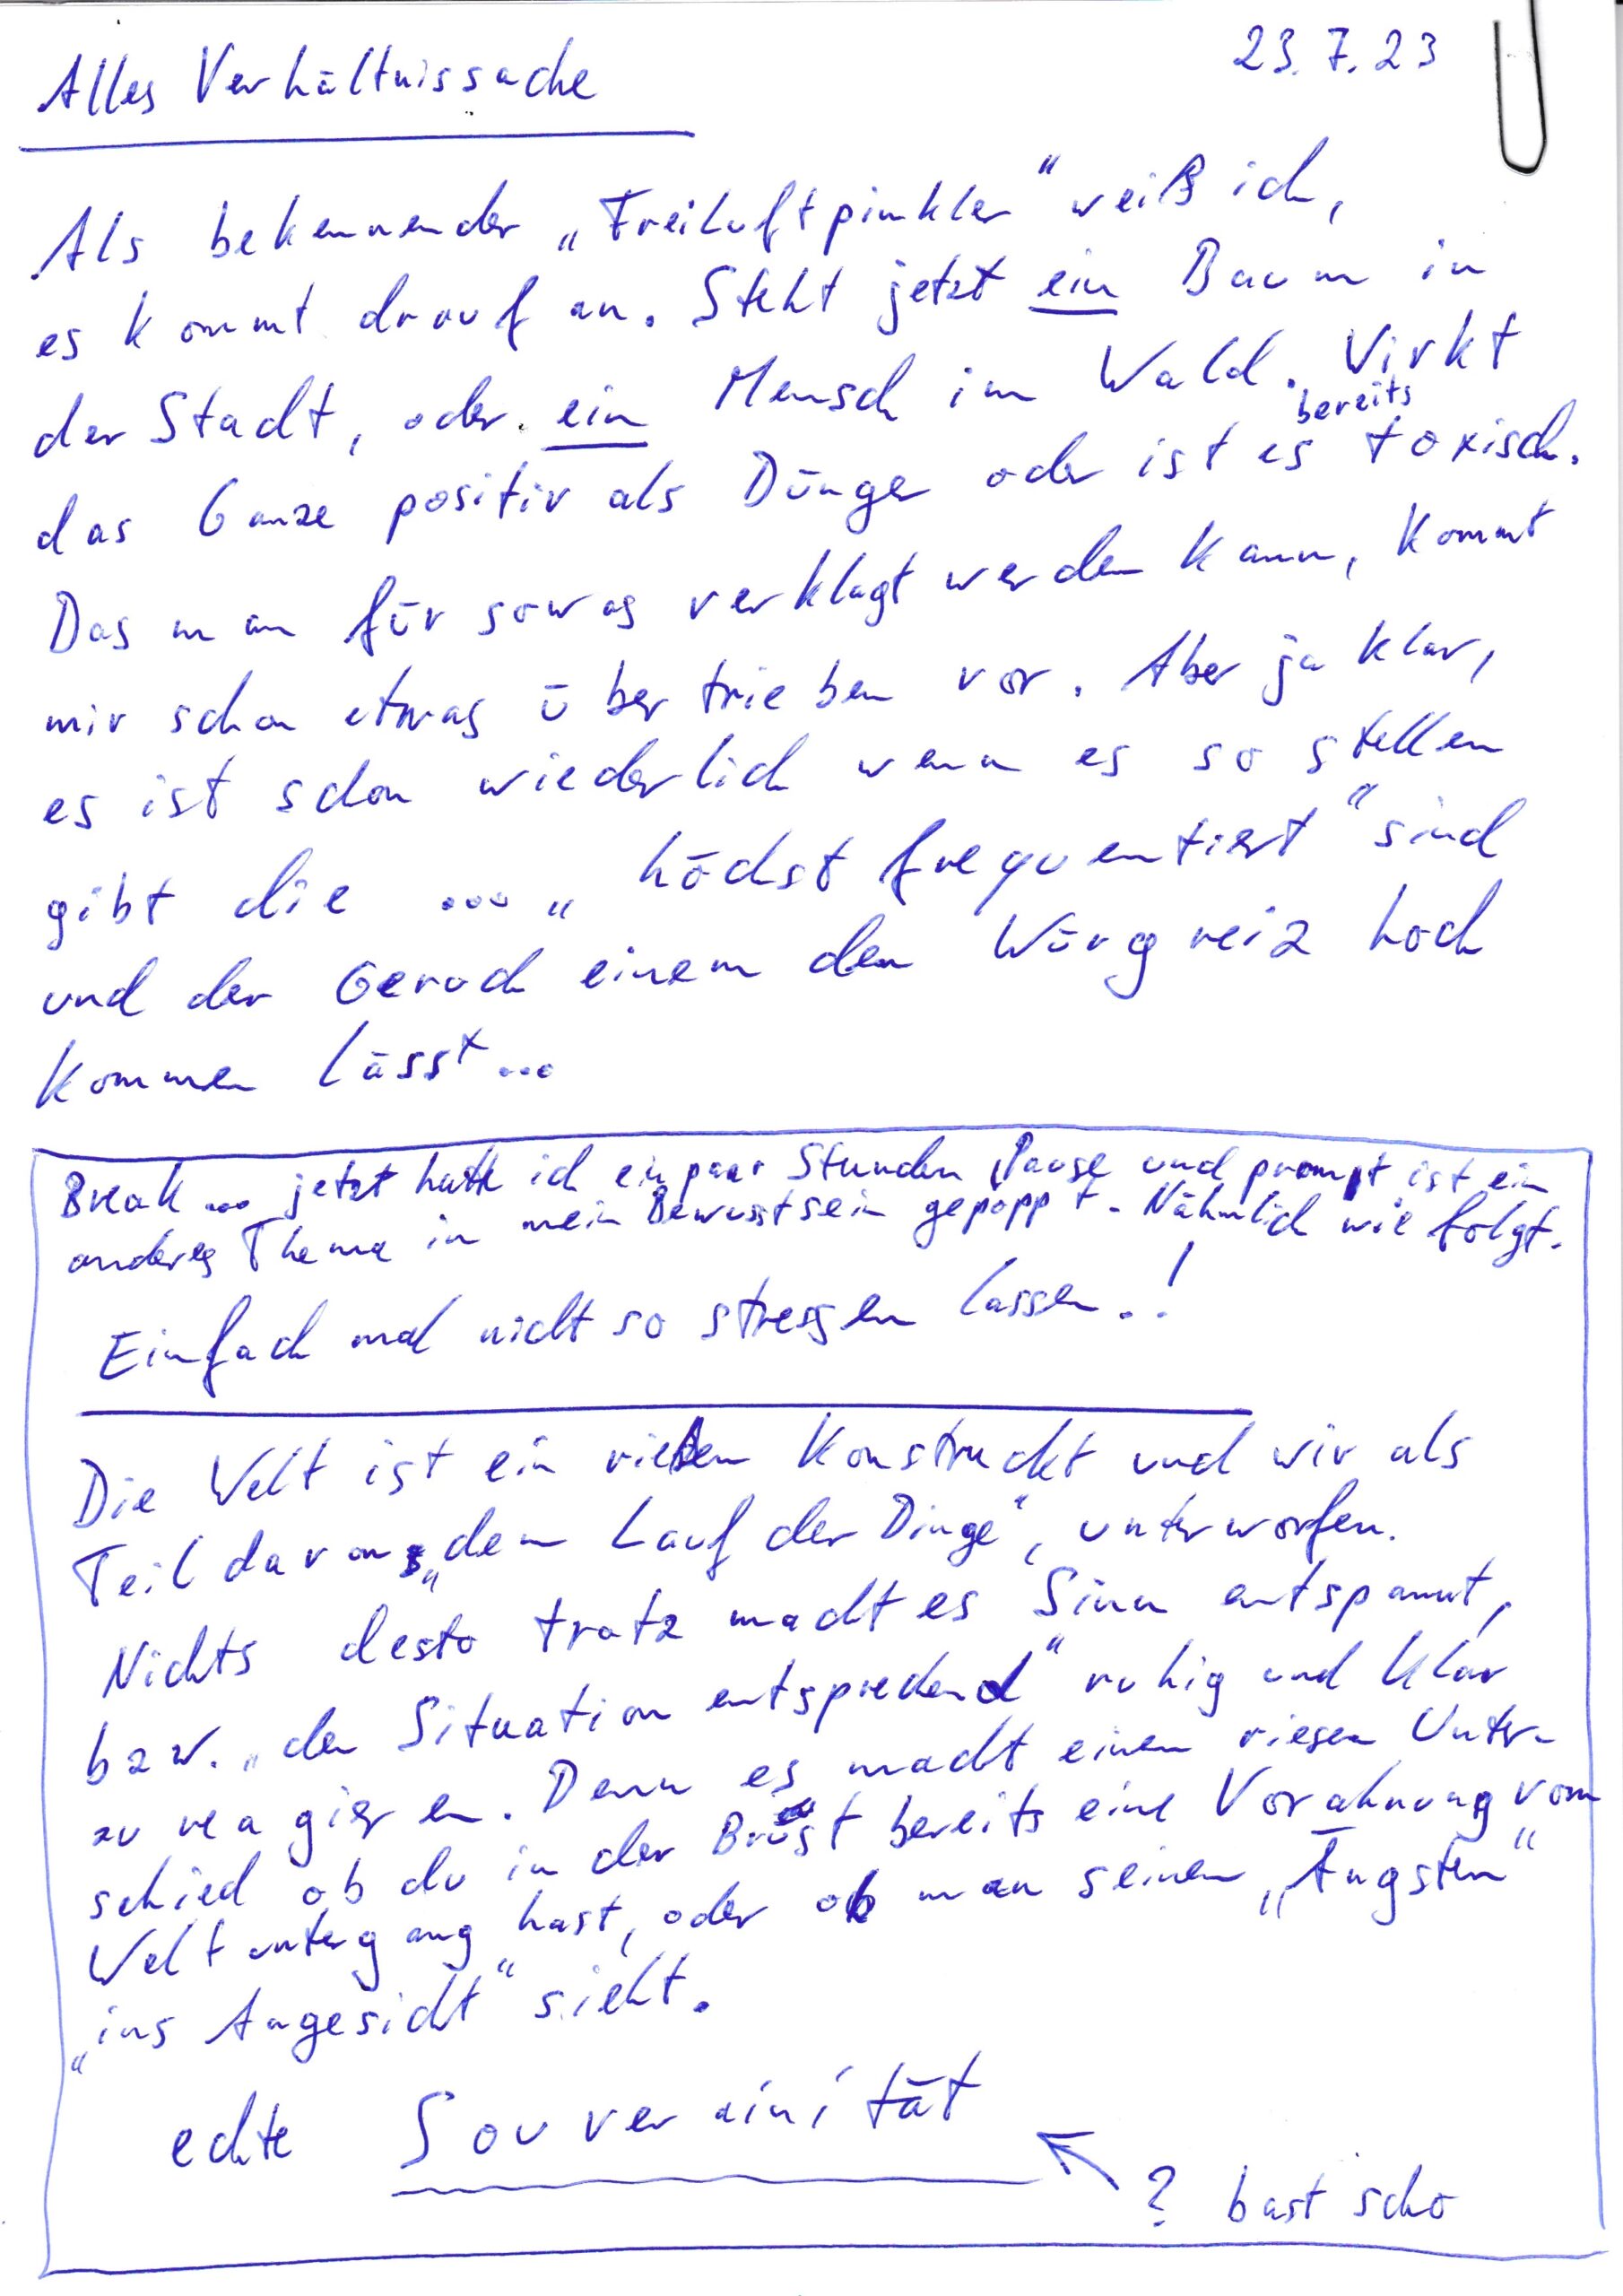 23.7.23
Alles Verhältnissache
Als bekennender „Freiluftpinkler“ weiß ich,
es kommt drauf an. Steht jetzt ein Baum in
der Stadt, oder ein Mensch im Wald. Wirkt
bereits
das Ganze positiv als Dünger oder ist es toxisch.
Das man für sowas verklagt werden kann, kommt
mir schon etwas übertrieben vor. Aber ja klar,
es ist schon wiederlich wenn es so stellen
gibt die ... „höchst frequentiert“ sind
und der Geruch einem den Würgreiz hoch
kommen lässt...
Break ... jetzt hatte ich ein paar Stunden Pause und prompt ist ein
anderes Thema in mein Bewusstsein gepoppt. Nähmlich wie folgt.
Einfach mal nicht so stressen lassen.!
Die Welt ist ein riesen Konstruckt und wir als
Teil davon, „dem Lauf der Dinge“, unterworfen.
Nichts desto trotz macht es Sinn entspannt,
bzw. „der Situation entsprechend“ ruhig und klar
zu reagieren. Denn es macht einen riesen Unter-
schied ob du in der Brust bereits eine Vorahnung vom
Weltuntergang hast, oder ob man seinen „Ängsten“
„ins Angesicht“ sieht.
echte Souverainität
? bast scho